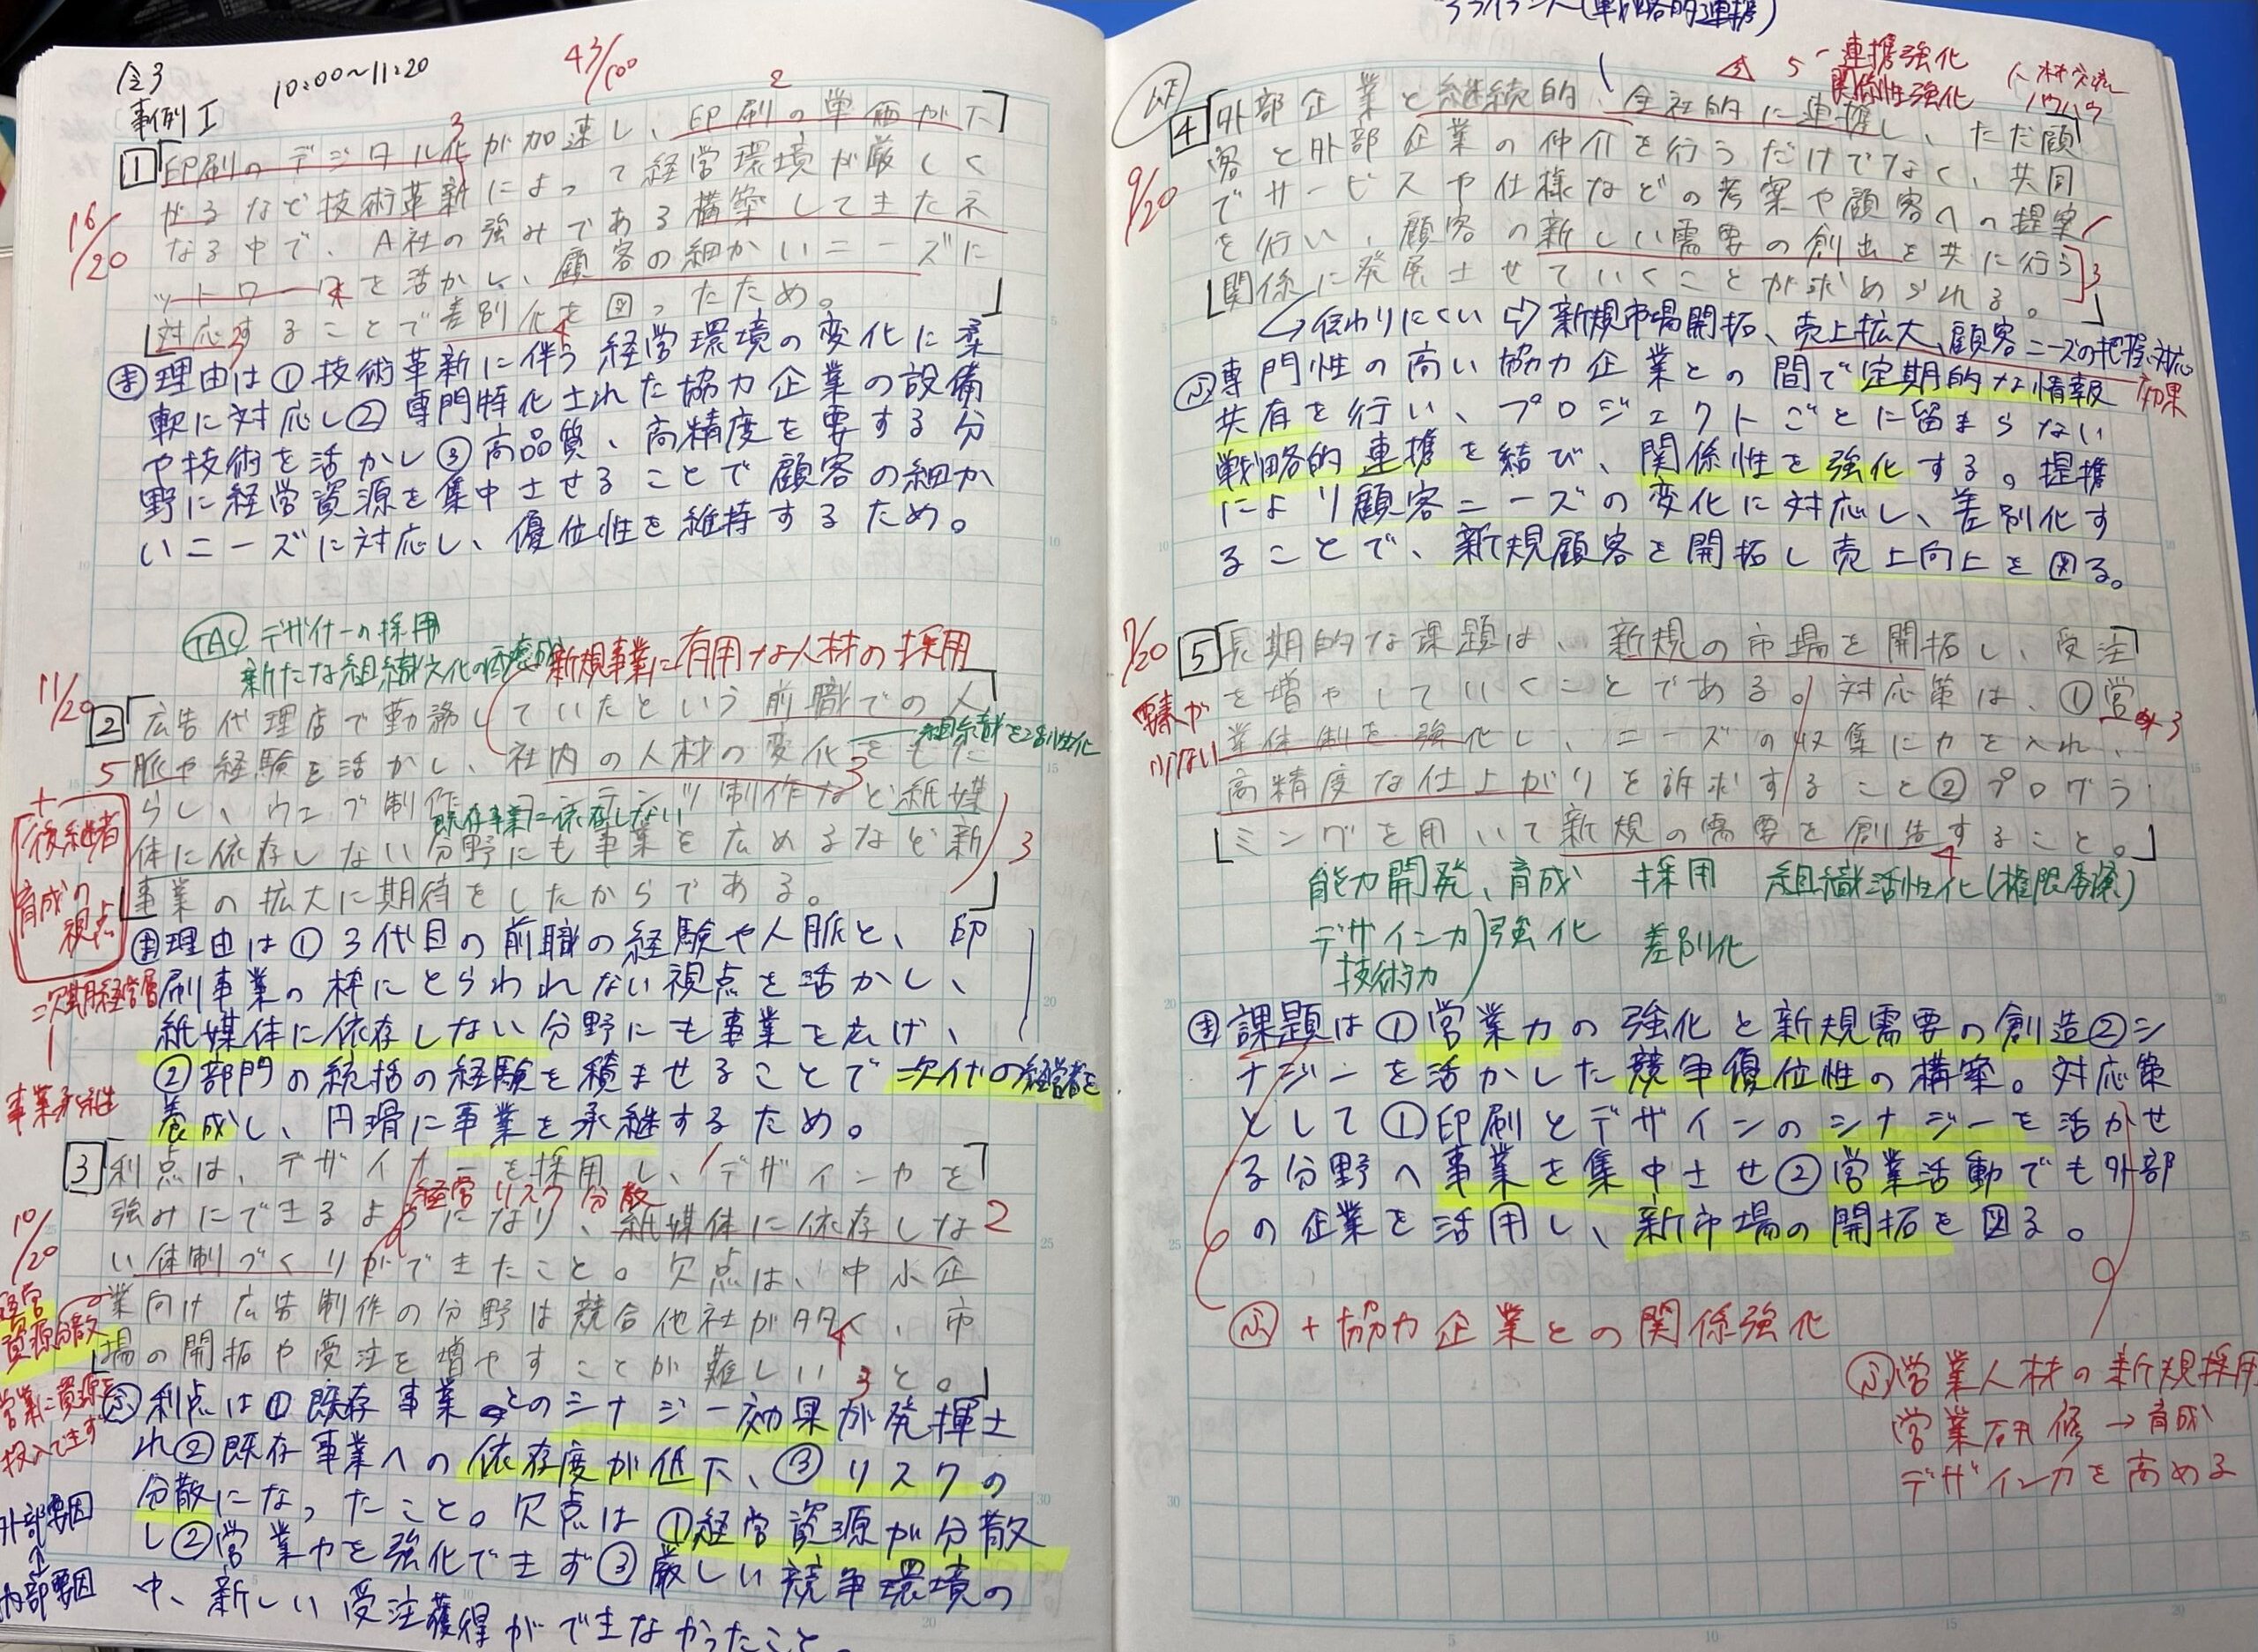 令3
事例Ⅰ
10:00~11:20
43/100
16/20
1
印刷のデジタル化が加速し、印刷の単価が下
がるなど技術革新によって経営環境が厳しく
なる中で、A社の強みである構築してきたネ
ットワークを活かし、顧客の細かいニーズに
対応することで差別化を図ったため。
理由は①技術革新に伴う経営環境の変化に柔
軟に対応し②専門特化された協力企業の設備
や技術を活かし③高品質、高精度を要する分
野に経営資源を集中させることで顧客の細か
いニーズに対応し、優位性を維持するため。
TAC デザイナーの採用
新たな組織文化の
新規事業に有用な人材の採用
11/20
2
広告代理店で勤務していたという前職での人
脈や経験を活かし、社内の人材の変化をもた
組織を活性化
らし、ウェブ制作、コンテンツ制作など紙媒
既存事業に依存しない
体に依存しない分野にも事業を広めるなど新
事業の拡大に期待をしたからである。
5
3
3
+
後継者
育成の
視点
=次期経営層
事業承継
理由は①3代目の前職の経験や人脈と、印
刷事業の枠にとらわれない視点を活かし、
紙媒体に依存しない分野にも事業を広げ、
②部門の統括の経験を積ませることで次代の経営者を
養成し、円滑に事業を承継するため。
10/20
3
利点は、デザイナーを採用し、デザイン力を
経営リスク分散
強みにできるようになり、紙媒体に依存しな
2
い体制づくりができたこと。欠点は、中小企
業向け広告制作の分野は競合他社が多く、市
場の開拓や受注を増やすことが難しいこと。
経営
資源分散
営業に資源を
投入できず
利点は①既存事業とのシナジー効果が発揮さ
れ②既存事業への依存度が低下、③リスクの
分散になったこと。欠点は①経営資源が分散
し②営業力を強化できず③厳しい競争環境の
中、新しい受注獲得ができなかったこと。
外部要因
内部要因
アライアンス(戦略的連携)
5
連携強化
関係性強化
人材交流
ノウハウ
9/20
4
外部企業と継続的、全社的に連携し、ただ顧
客と外部企業の仲介を行うだけでなく、共同
でサービスや仕様などの考案や顧客への提案
を行い、顧客の新しい需要の創出を共に行う
関係に発展させていくことが求められる。
3
伝わりにくい⇒新規市場開拓、売上拡大、顧客ニーズの把握、対応
効果
専門性の高い協力企業との間で定期的な情報
共有を行い、プロジェクトごとに留まらない
戦略的連携を結び、関係性を強化する。提携
により顧客ニーズの変化に対応し、差別化す
ることで、新規顧客を開拓し売上向上を図る。
7/20
要素が
少ない
5
長期的な課題は、新規の市場を開拓し、受注
を増やしていくことである。対応策は、①営
業体制を強化し、ニーズの収集に力を入れ、
高精度な仕上がりを訴求すること②プログラ
ミングを用いて新規の需要を創造すること。
3
4
能力開発、育成 採用 組織活性化(権限委譲)
デザイン力
技術力
強化 差別化
課題は①営業力の強化と新規需要の創造②シ
ナジーを活かした競争優位性の構築。対応策
として①印刷とデザインのシナジーを活かせ
る分野へ事業を集中させ②営業活動でも外部
の企業を活用し、新市場の開拓を図る。
+協力企業との関係強化
営業人材の新規採用
営業研修→育成
デザイン力を高める